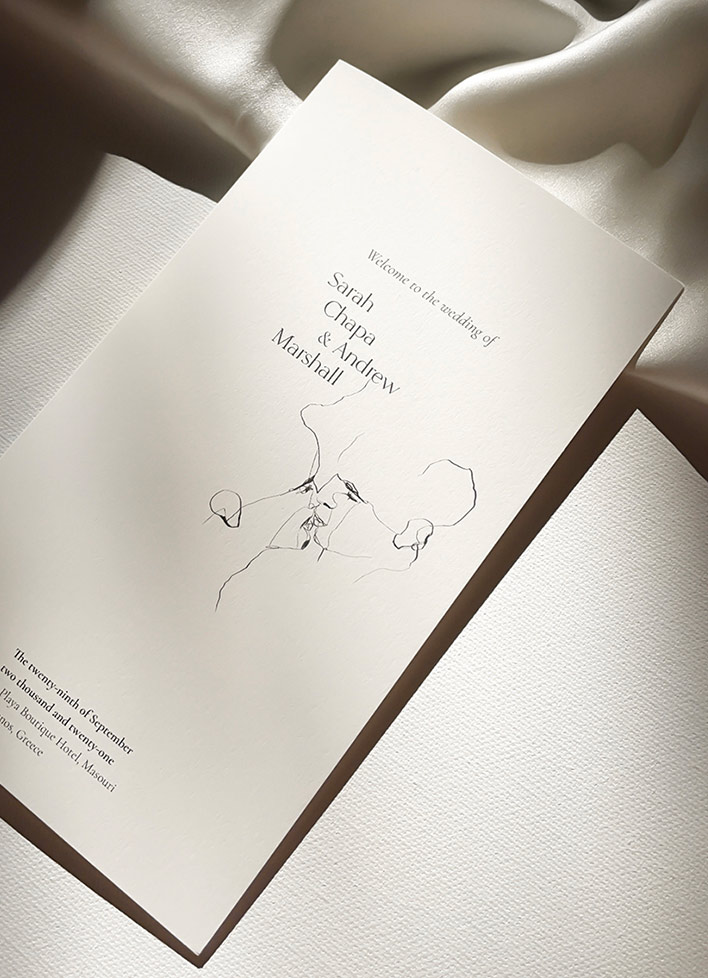 Welcome to the wedding of
Sarah
Chapa
& Andrew
Marshall
The twenty-ninth of September
two thousand and twenty-one
Playa Boutique Hotel, Masouri
Greece